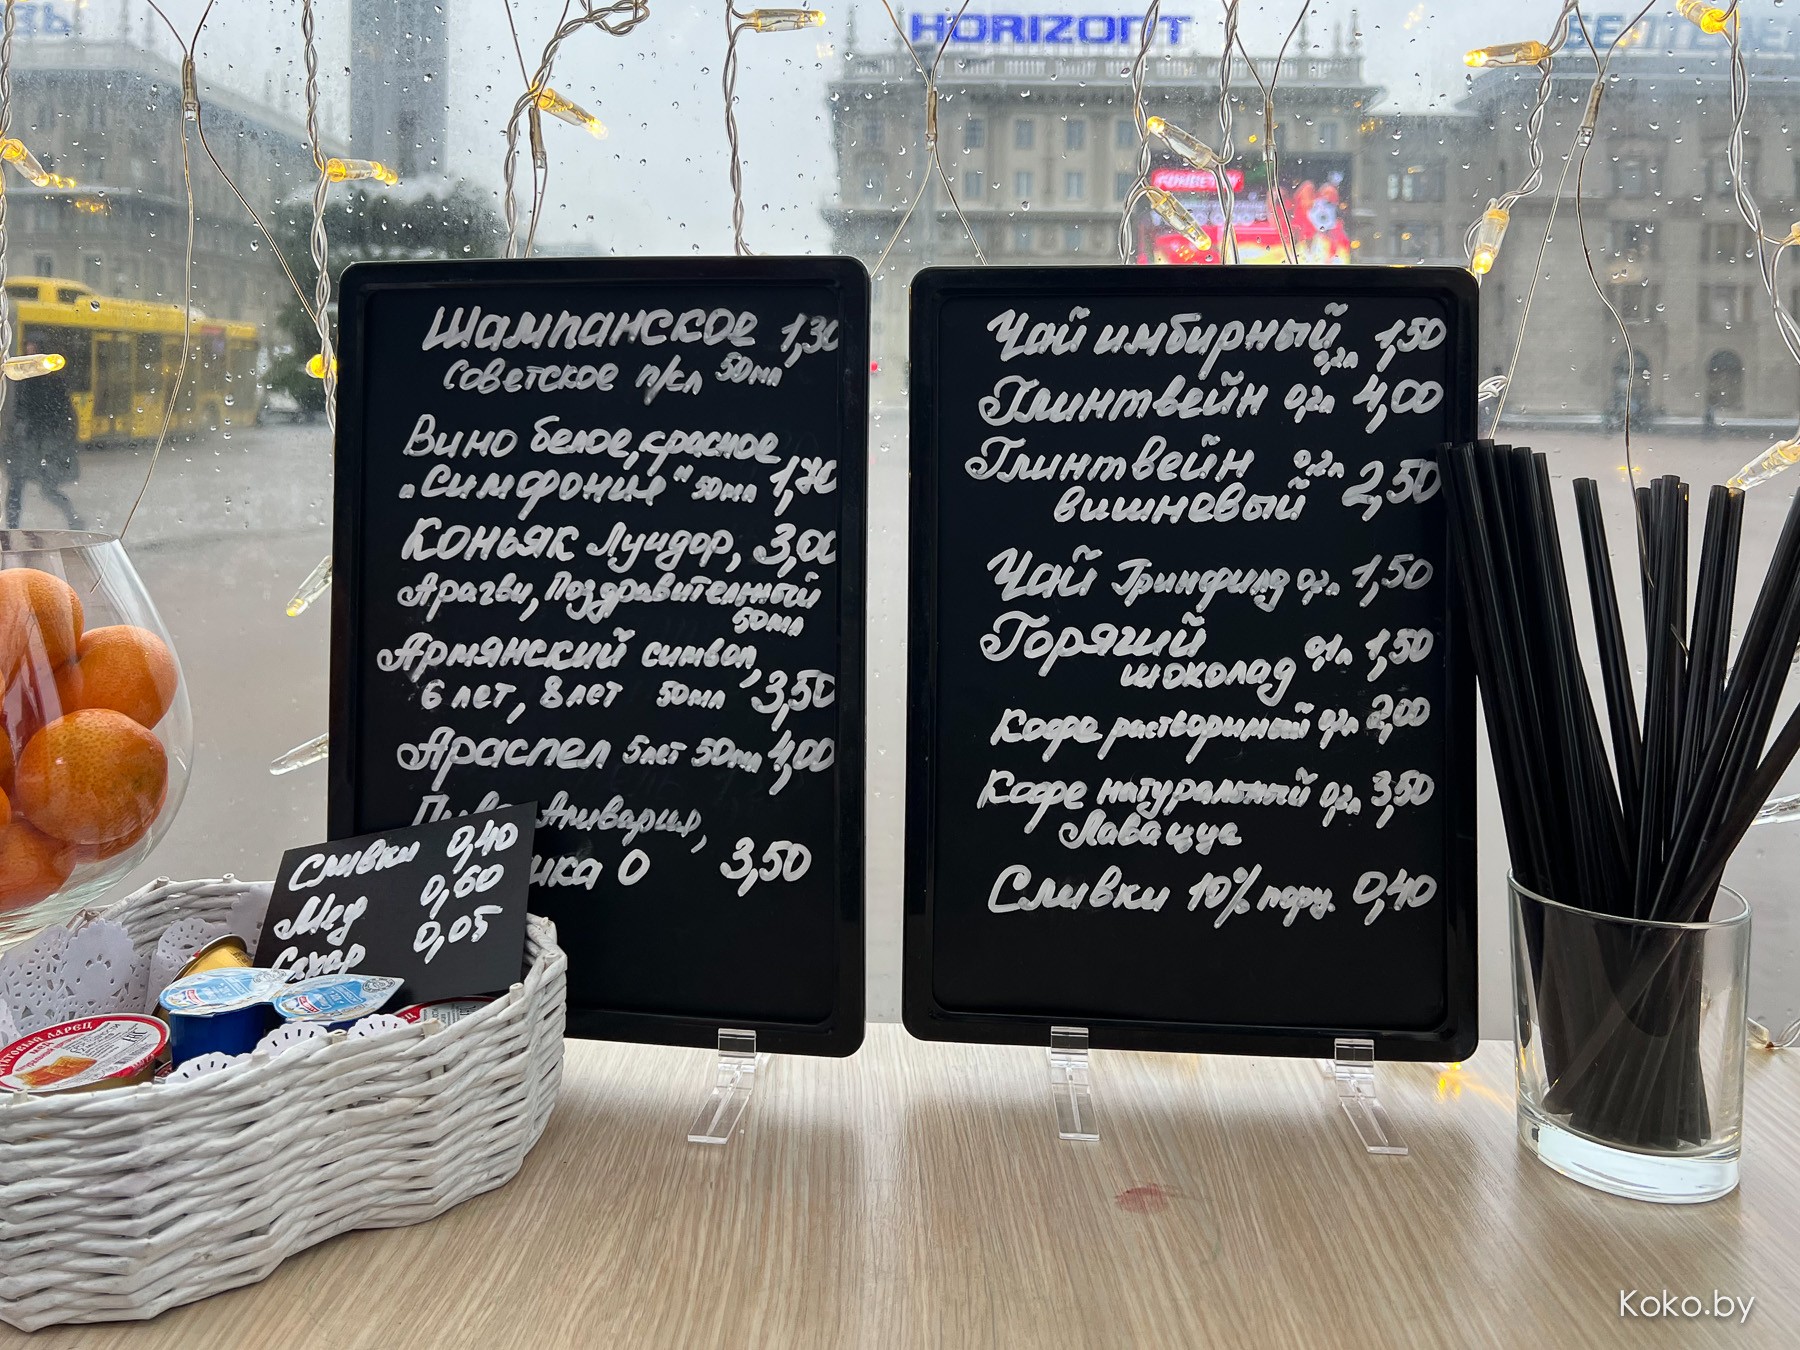 HORIZONT
Шампанское 1,30
Советское п/сл 50мл
Вино белое, красное
„Симфония" 50мл 1,70
Коньяк Луидор, 3,00
Арагви, Поздравительный
50мл
Армянский символ,
6 лет, 8 лет 50мл 3,50
Араспел 5 лет 50мл 4,00
Пиво Аливария,
0 3,50
Сливки 0,40
Мёд 0,60
Сахар 0,05
Чай имбирный 0,2л 1,50
Глинтвейн 0,2л 4,00
Глинтвейн 0,2л
вишневый 2,50
Чай Гринфилд 0,2л 1,50
Горячий
шоколад 0,1л 1,50
Кофе растворимый 0,2л 2,00
Кофе натуральный 0,2л 3,50
Лавацца
Сливки 10% порц. 0,40
ЛАРЕЦ
Koko.by